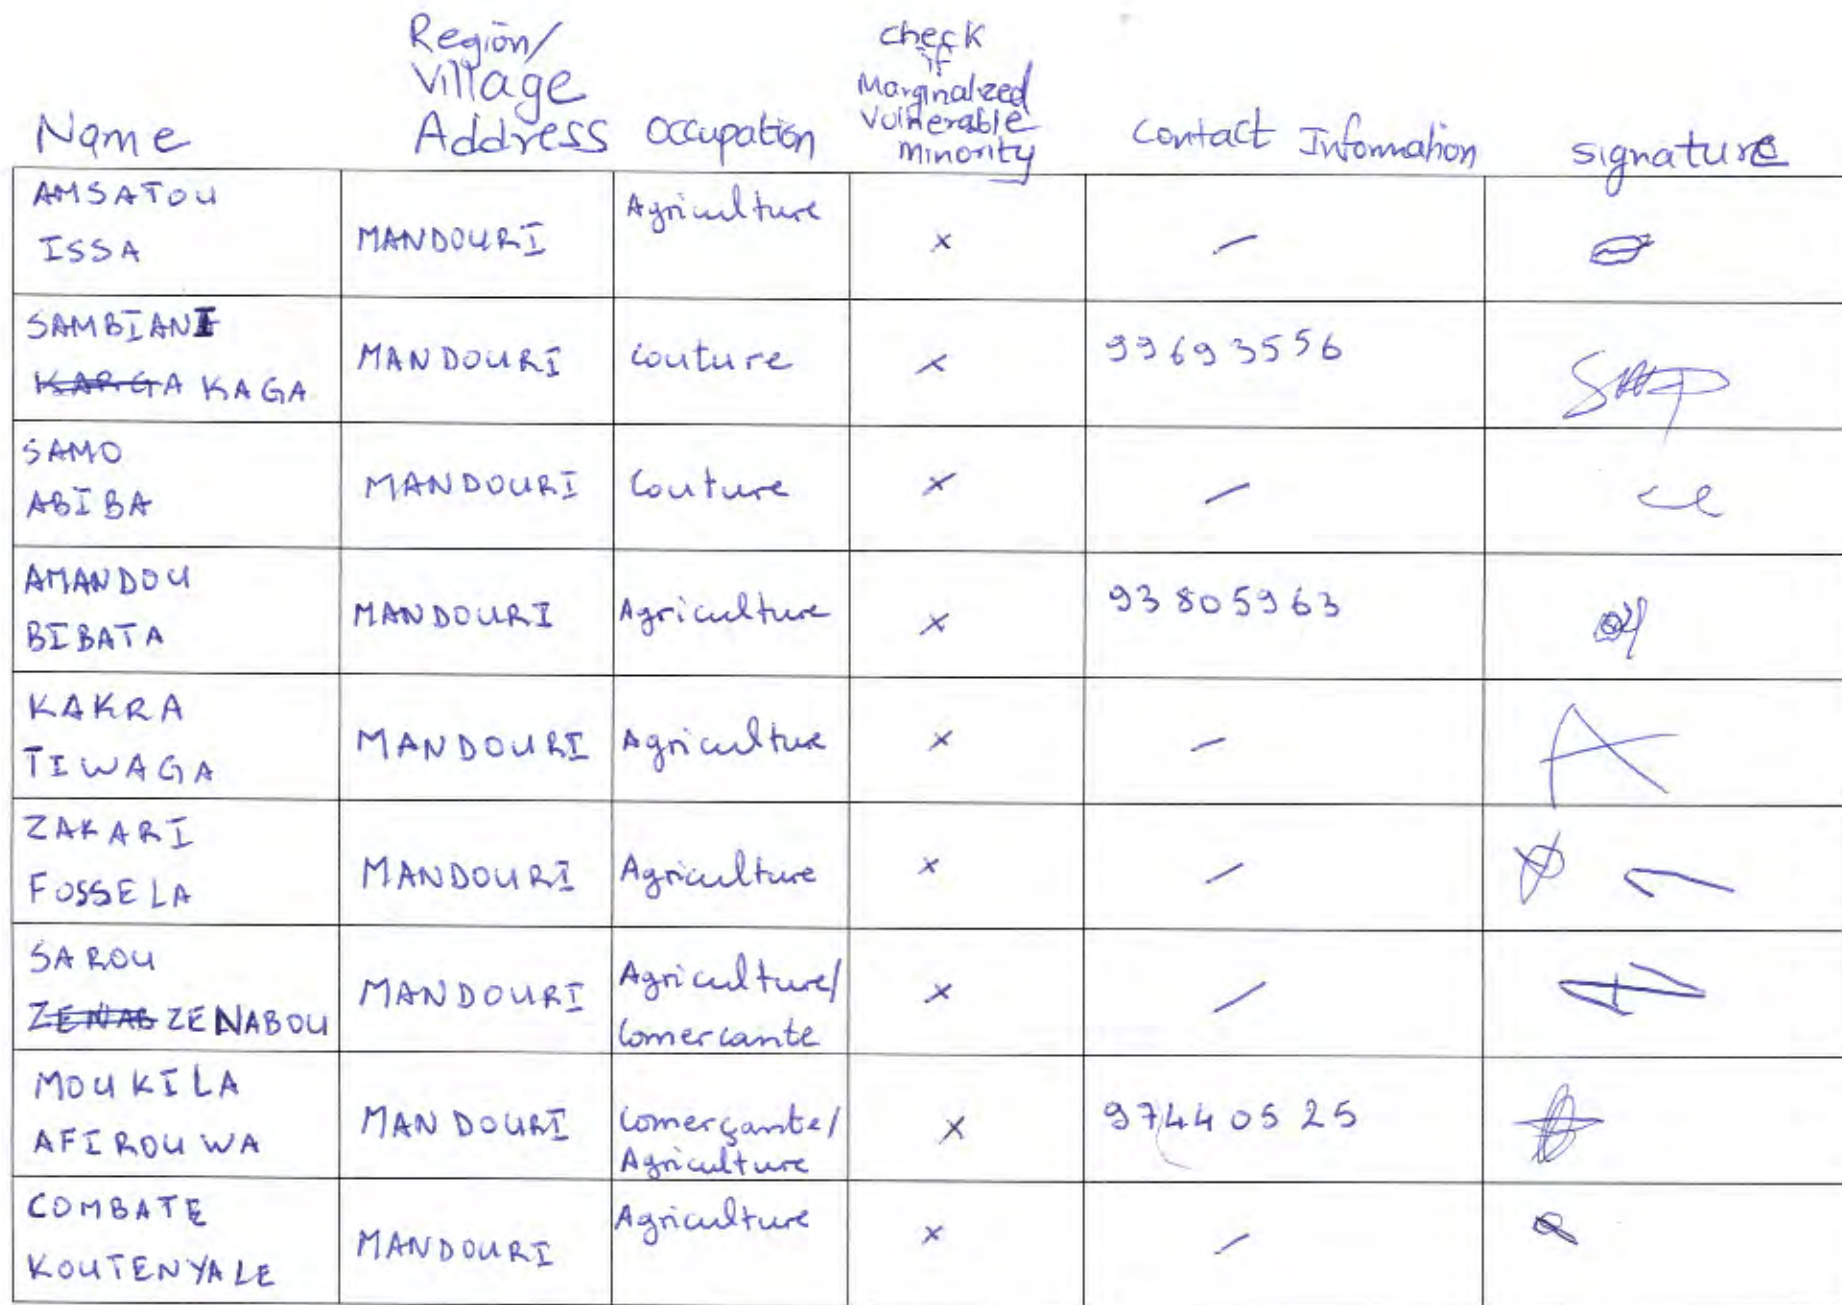 Name
Region/
Village
Address
Occupation
check
if
Marginalized
Vulnerable
minority
Contact Information
signature
AMSATOU
ISSA
MANDOURI
Agriculture
x
—
SAMBIANI
KARGA KAGA
MANDOURI
Couture
x
99693556
SAMO
ABIBA
MANDOURI
Couture
x
—
AMANDOU
BIBATA
MANDOURI
Agriculture
x
93805963
KAKRA
TIWAGA
MANDOURI
Agriculture
x
—
ZAKARI
FOSSELA
MANDOURI
Agriculture
x
—
SAROU
ZENAB ZENABOU
MANDOURI
Agriculture/
Comercante
x
—
MOUKILA
AFIROUWA
MANDOURI
Comerçante/
Agriculture
x
97440525
COMBATE
KOUTENYALE
MANDOURI
Agriculture
x
—